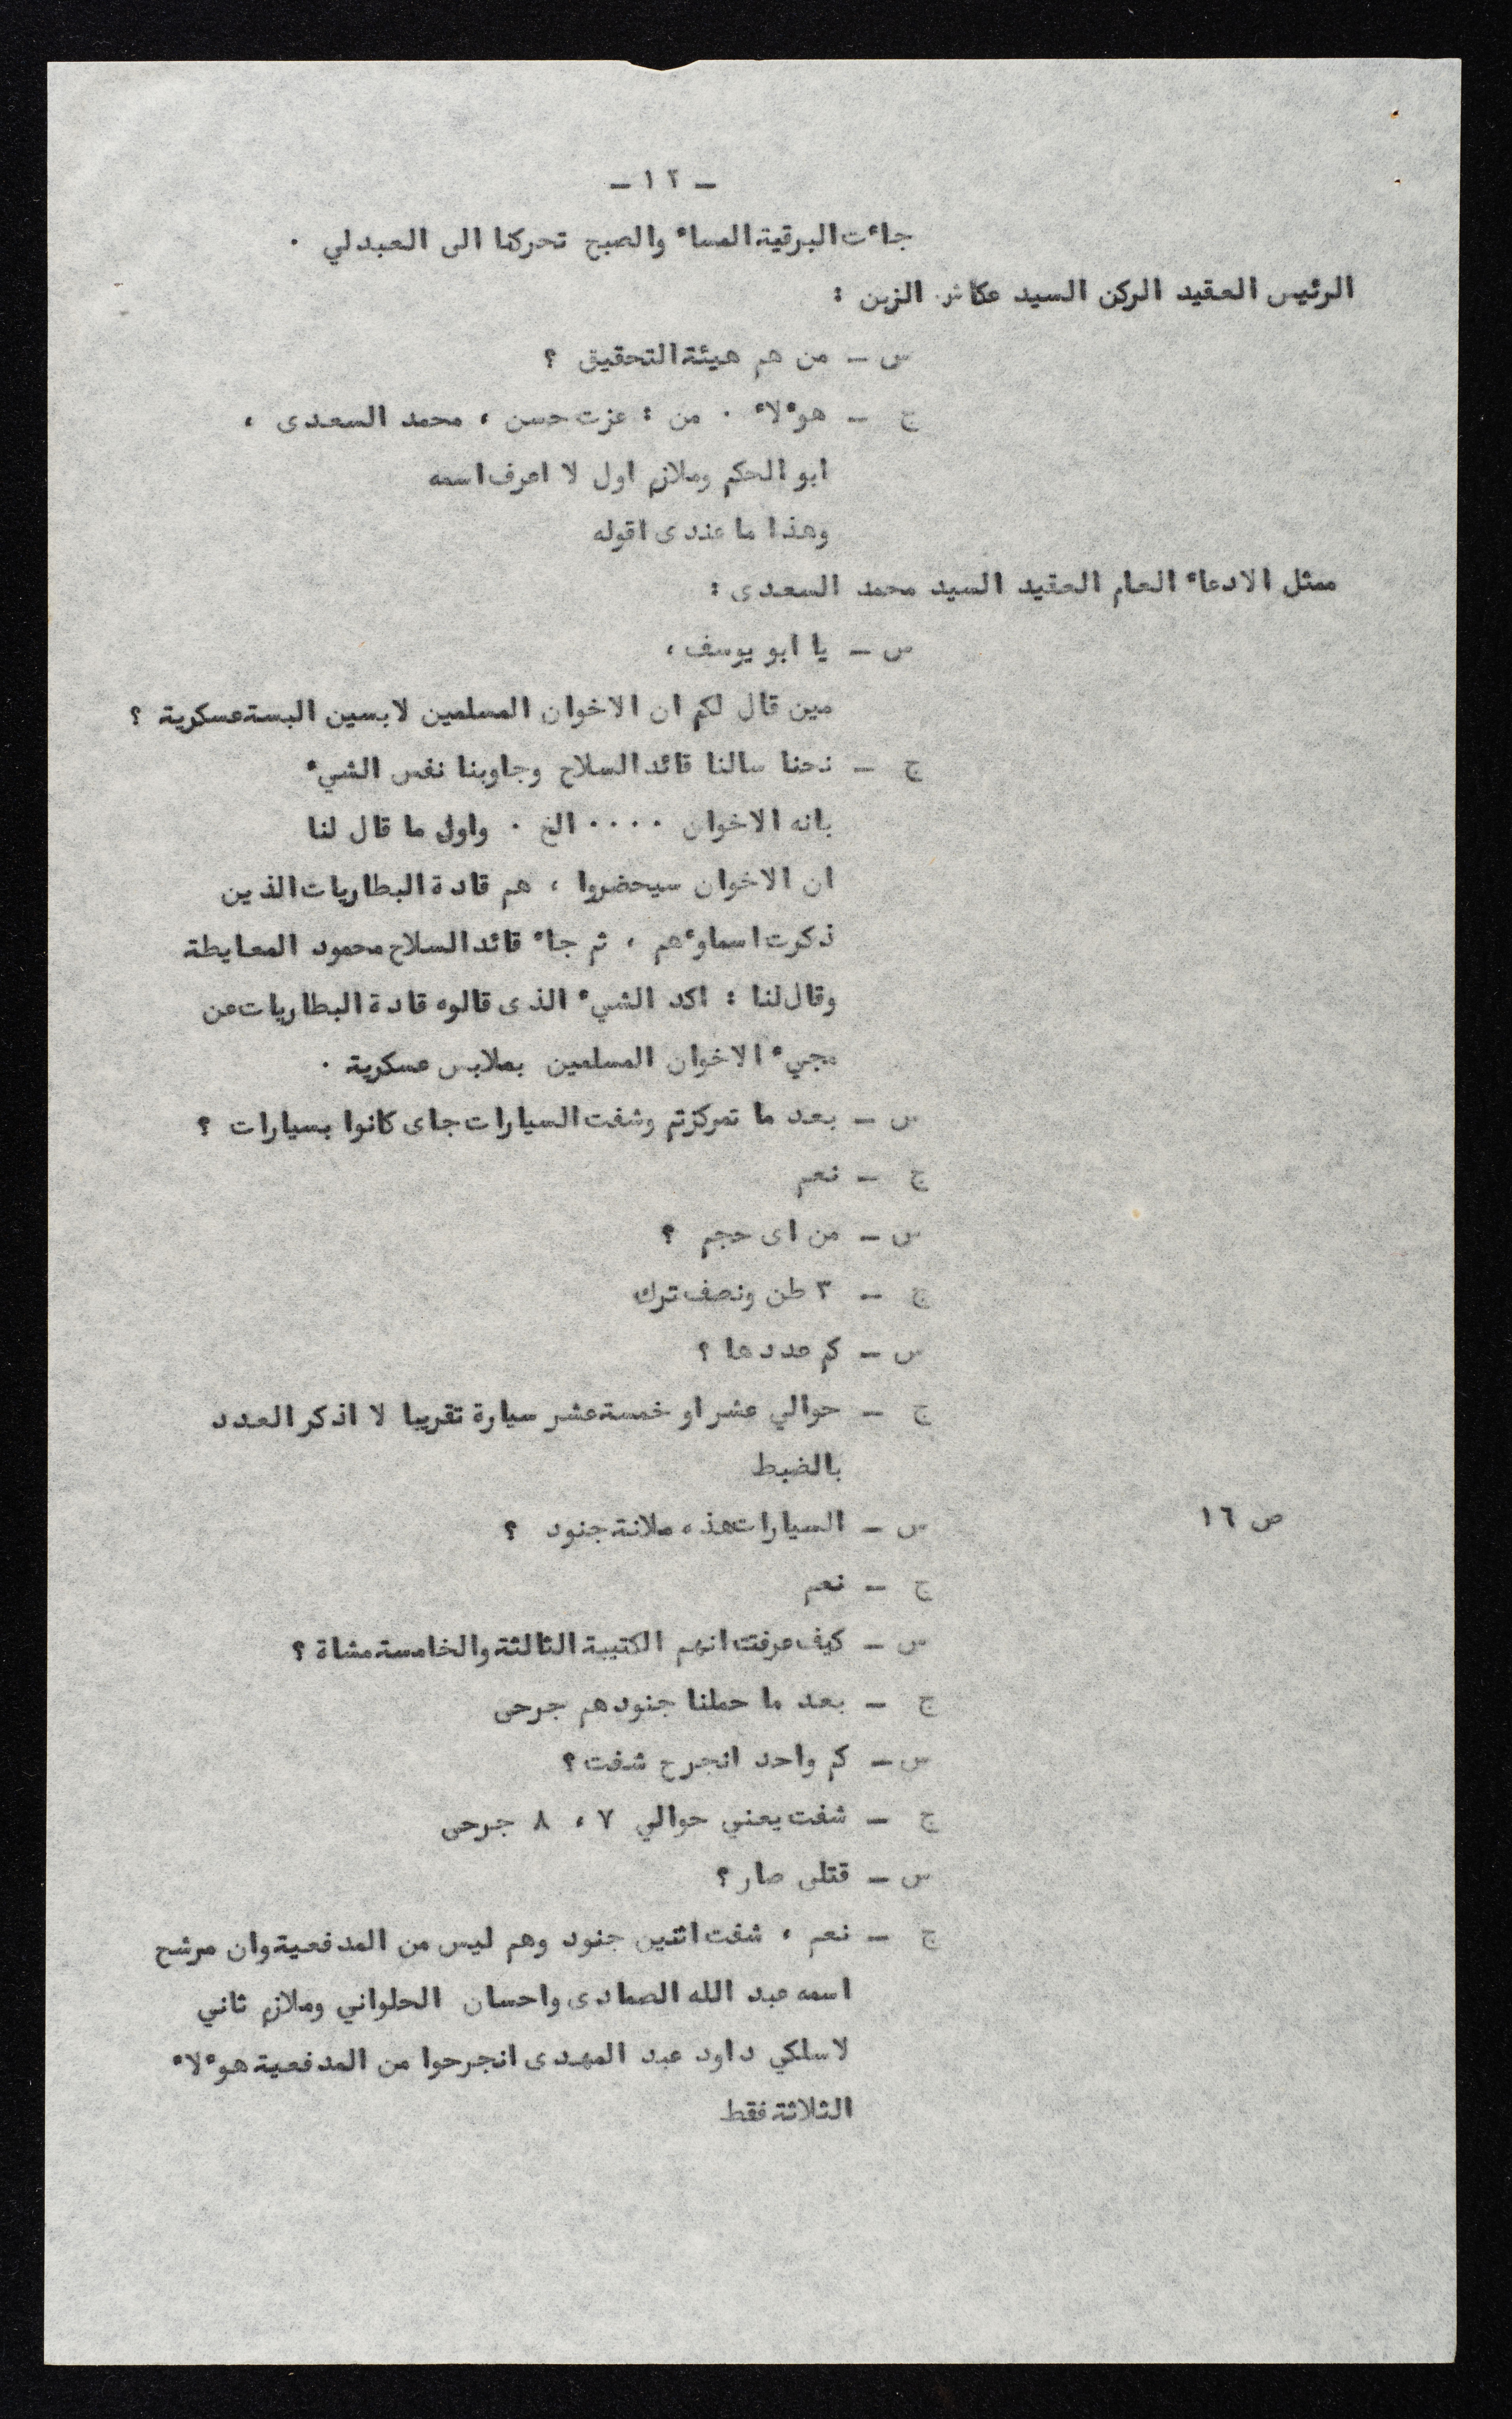 - ١٢ -
جاءت البرقية المساء والصبح تحركنا الى العبدلي ٠
الرئيس العقيد الركن السيد عكاش الزين :
س - من هم هيئة التحقيق ؟
ج - هوءلاء ٠ من : عزت حسن ، محمد السعدى ،
ابو الحكم وملازم اول لا اعرف اسمه
وهذا ما عندى اقوله
ممثل الادعاء العام العقيد السيد محمد السعدى :
س - يا ابو يوسف ،
مين قال لكم ان الاخوان المسلمين لابسين البسة عسكرية ؟
ج - نحنا سالنا قائد السلاح وجاوبنا نفس الشيء
بانه الاخوان ٠٠٠٠ الخ ٠ واول ما قال لنا
ان الاخوان سيحضروا ، هم قادة البطاريات الذين
ذكرت اسماوءهم ، ثم جاء قائد السلاح محمود المعايطة
وقال لنا : اكد الشيء الذى قالوه قادة البطاريات عن
مجيء الاخوان المسلمين بملابس عسكرية ٠
س - بعد ما تمركزتم وشفت السيارات جاى كانوا بسيارات ؟
ج - نعم
س - من اى حجم ؟
ج - ٣ طن ونصف ترك
س - كم عددها ؟
ج - حوالي عشر او خمسة عشر سيارة تقريبا لا اذكر العدد
بالضبط
ص ١٦ س - السيارات هذه ملانة جنود ؟
ج - نعم
س - كيف عرفت انهم الكتيبة الثالثة والخامسة مشاة ؟
ج - بعد ما حملنا جنودهم جرحى
س - كم واحد انجرح شفت ؟
ج - شفت يعني حوالي ٧ ، ٨ جرحى
س - قتلى صار ؟
ج - نعم ، شفت اثنين جنود وهم ليس من المدفعية وان مرشح
اسمه عبد الله الصمادى واحسان الحلواني وملازم ثاني
لاسلكي داود عبد المهدى انجرحوا من المدفعية هوءلاء
الثلاثة فقط